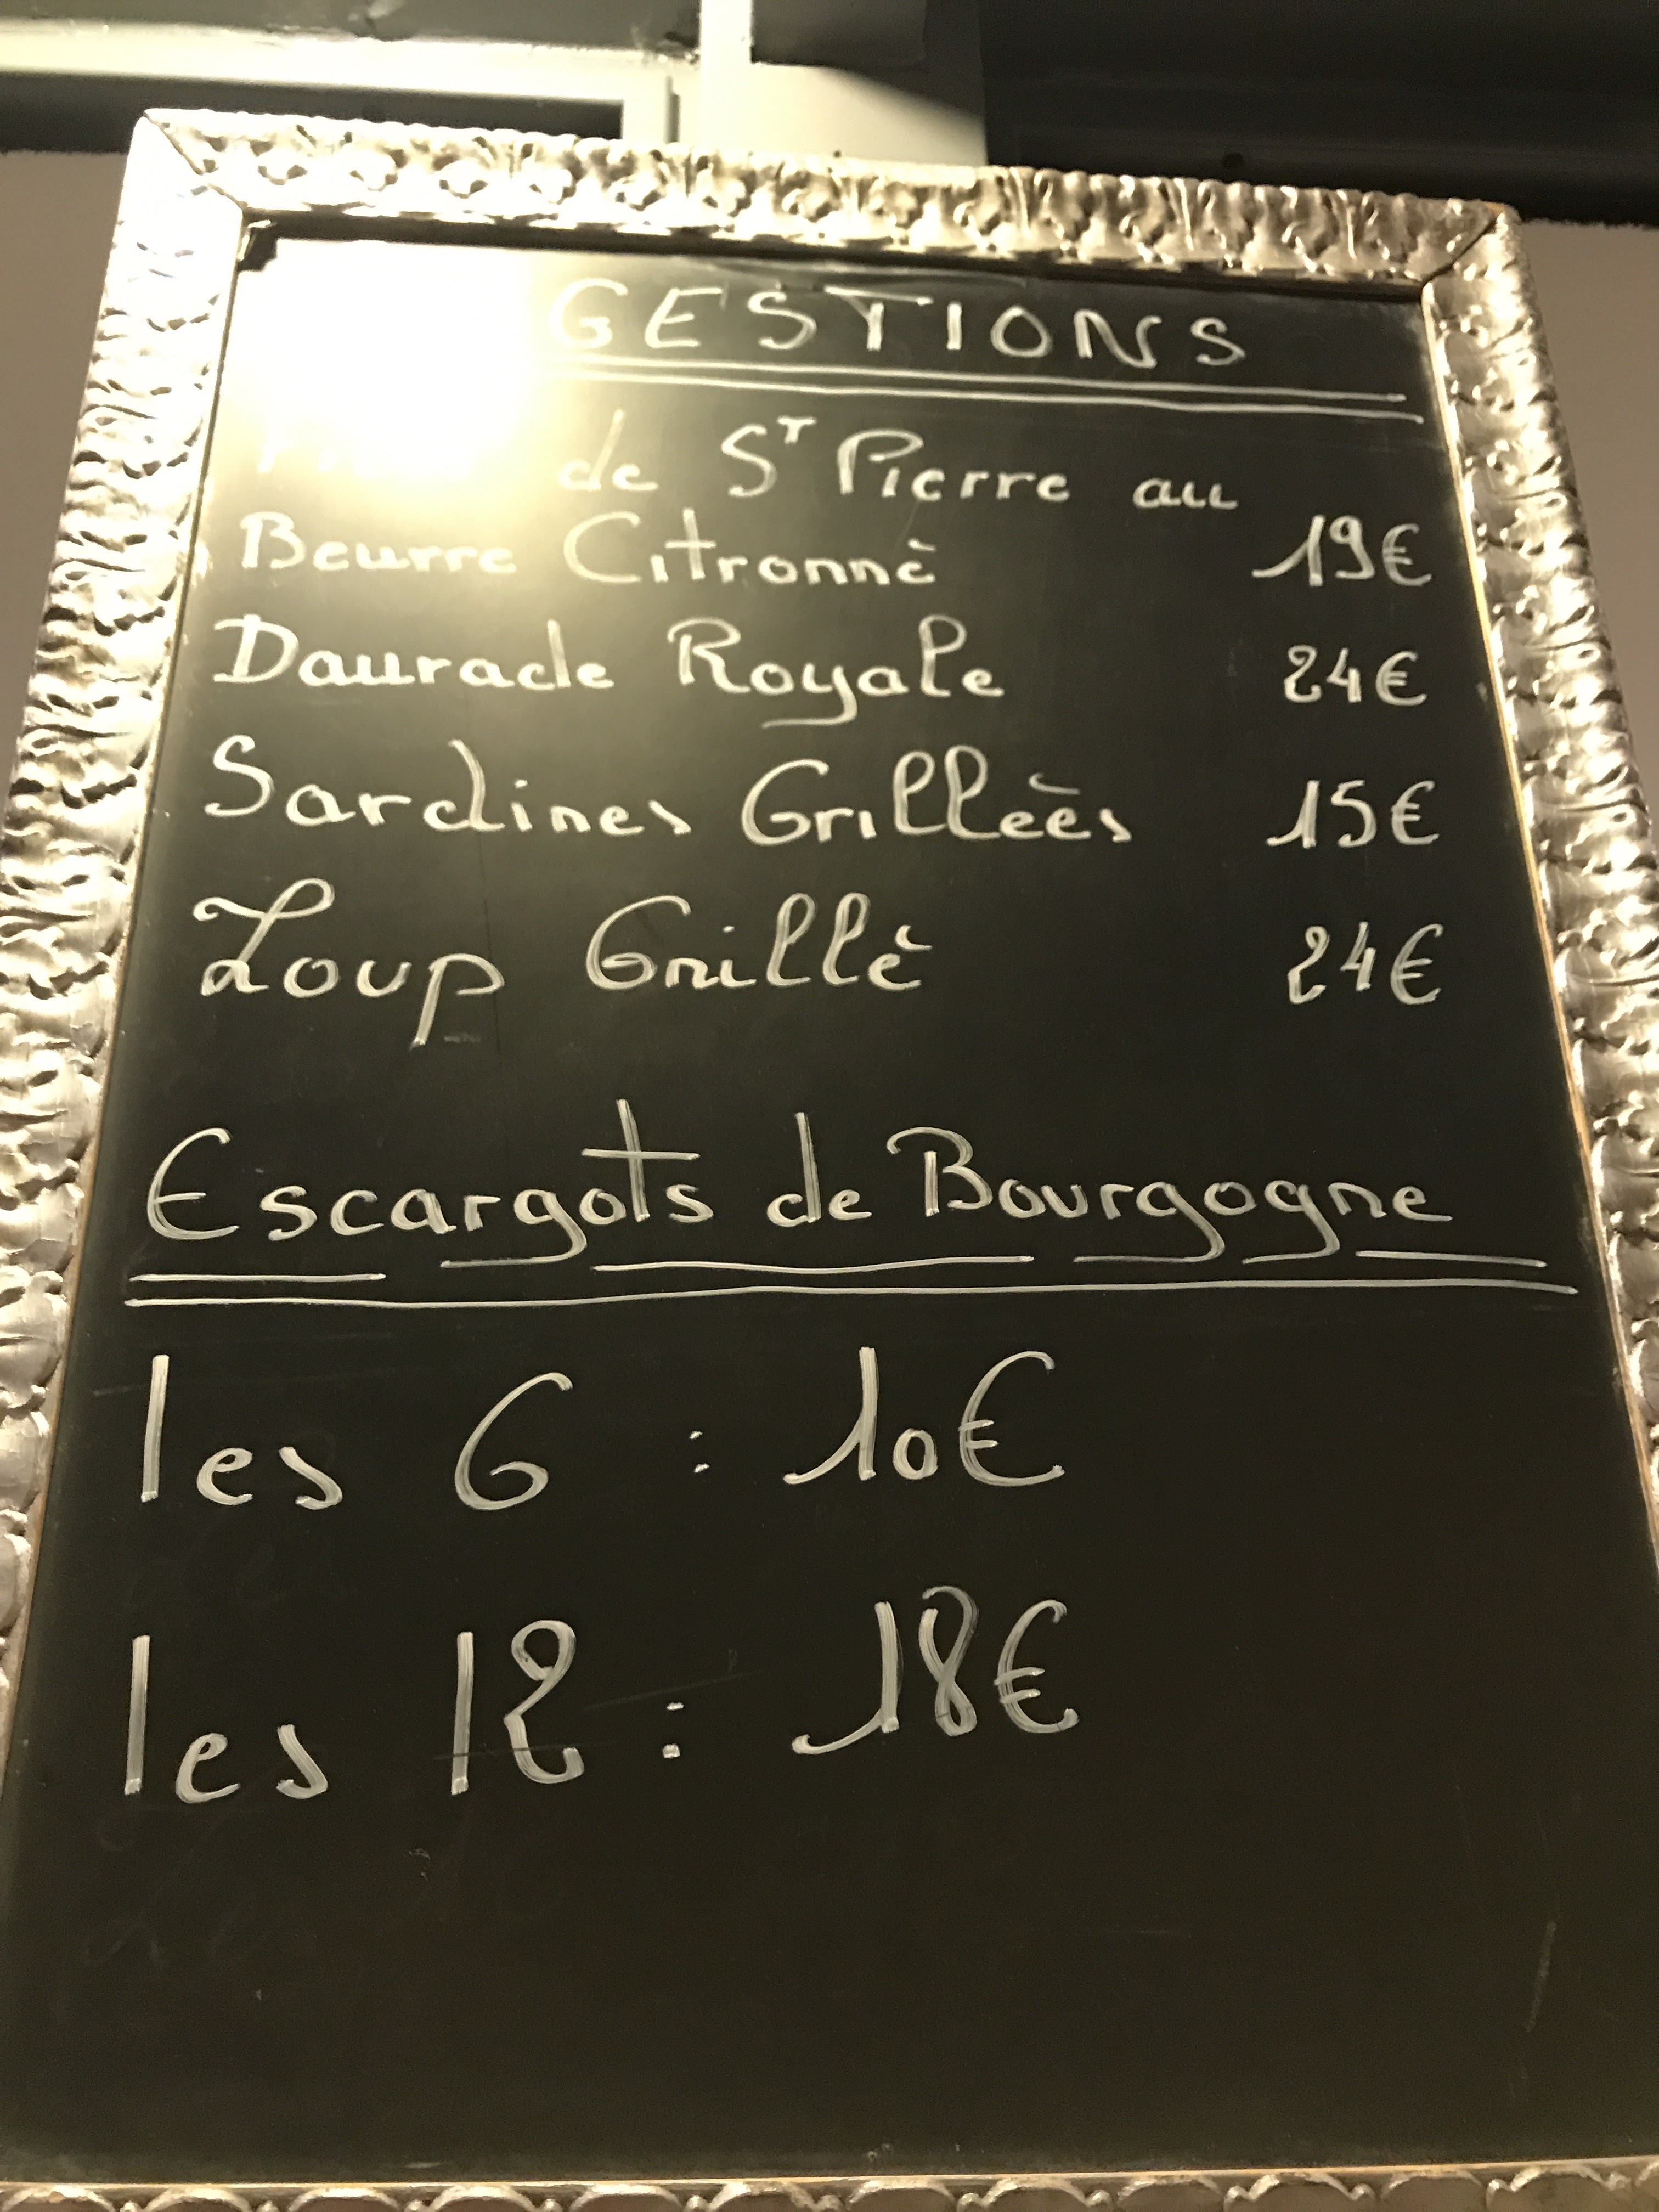 GESTIONS
de St Pierre au
Beurre Citronnè 19€
Daurade Royale 24€
Sardines Grillèes 15€
Loup Grillè 24€
Escargots de Bourgogne
les 6 : 10€
les 12 : 18€